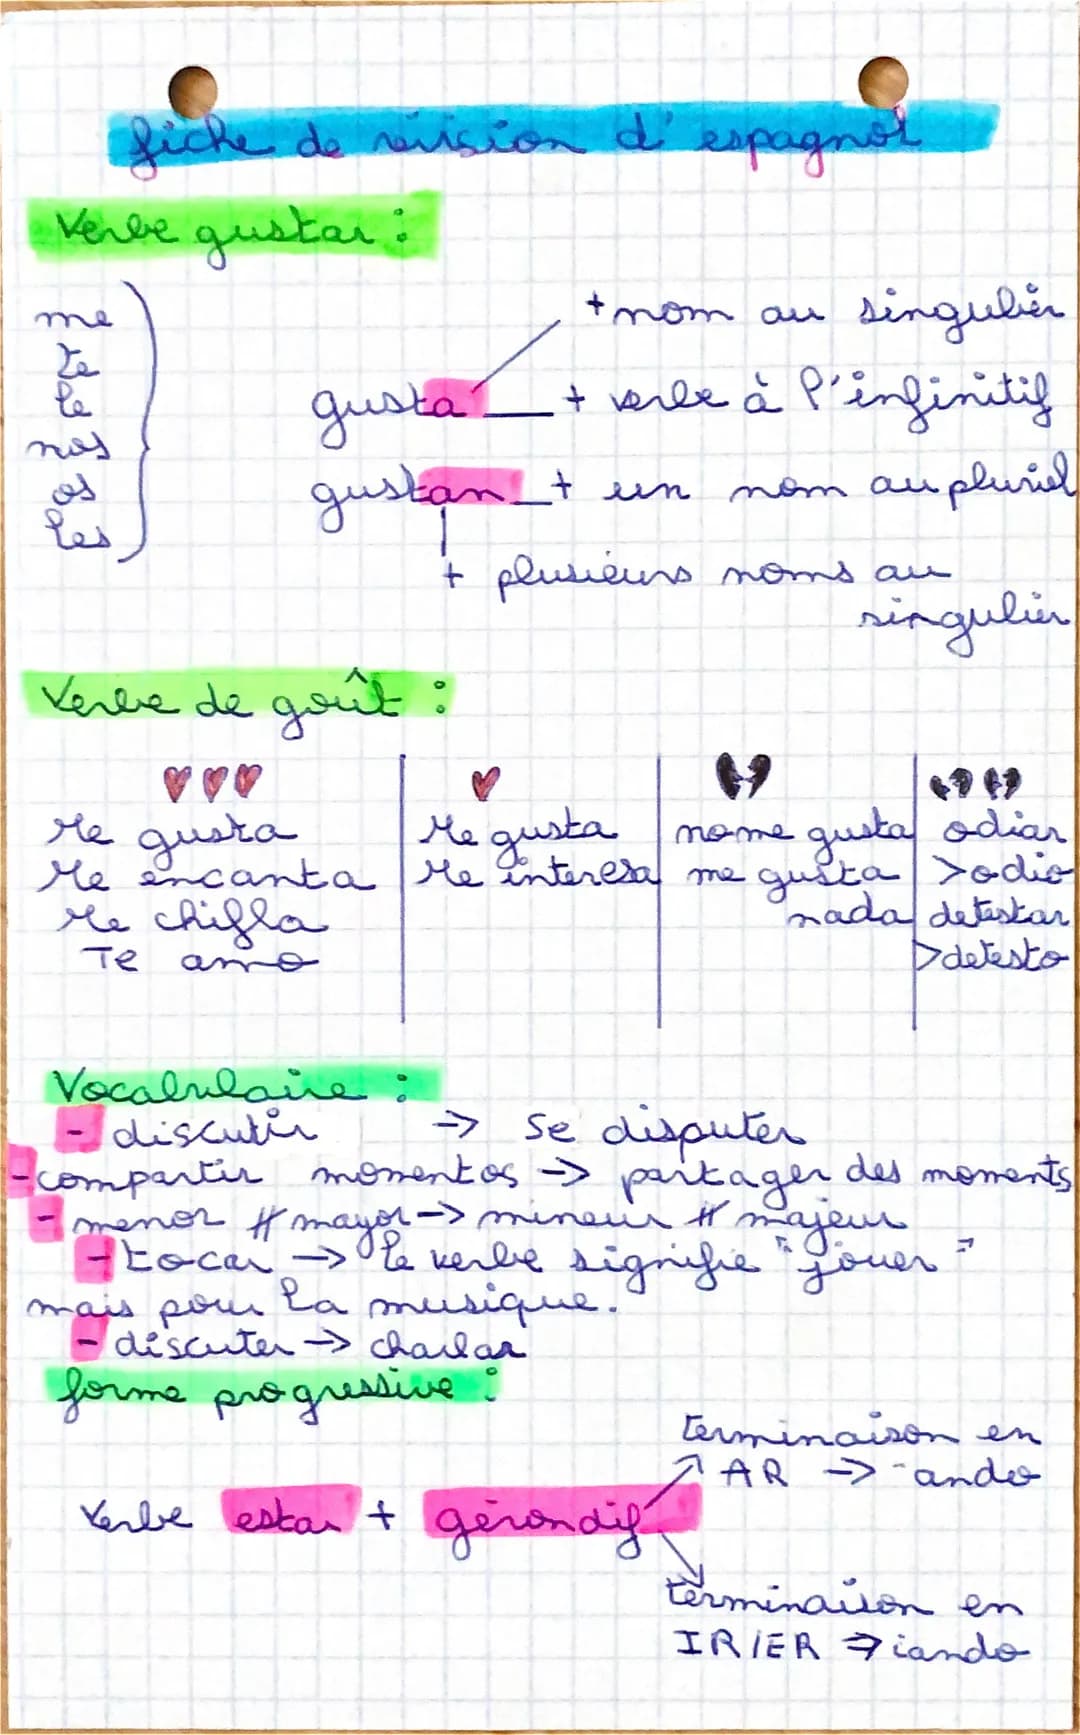 fiche de révision d'espagnol
Verbe gustar :
me
te
le
nos
os
les
+ nom au singulier
gusta + verbe à l'infinitif
gustan + un nom au pluriel
+ plusieurs noms au
singulier
Verbe de goût :
Me gusta
Me encanta
Me chifla
Te amo
Me gusta
Me interesa
no me gusta
me gusta
nada
odiar
>odio
detestar
>detesto
Vocabulaire :
- discutir → Se disputer
- compartir momentos → partager des moments
- menor # mayor → mineur # majeur
- tocar → le verbe signifie "jouer"
mais pour la musique.
- discuter → charlar
forme progressive :
terminaison en
AR → -ando
Verbe estar + gérondif
terminaison en
IR/ER → iando